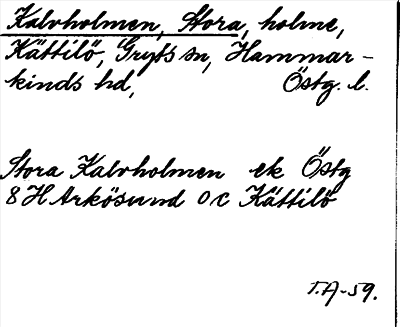 Kalvholmen, Stora, holme,
Kättilö, Gryts sn, Hammar-
kinds hd, Östg. l.
Stora Kalvholmen ek Östg
8H Arkösund 0c Kättilö
T.A-59.